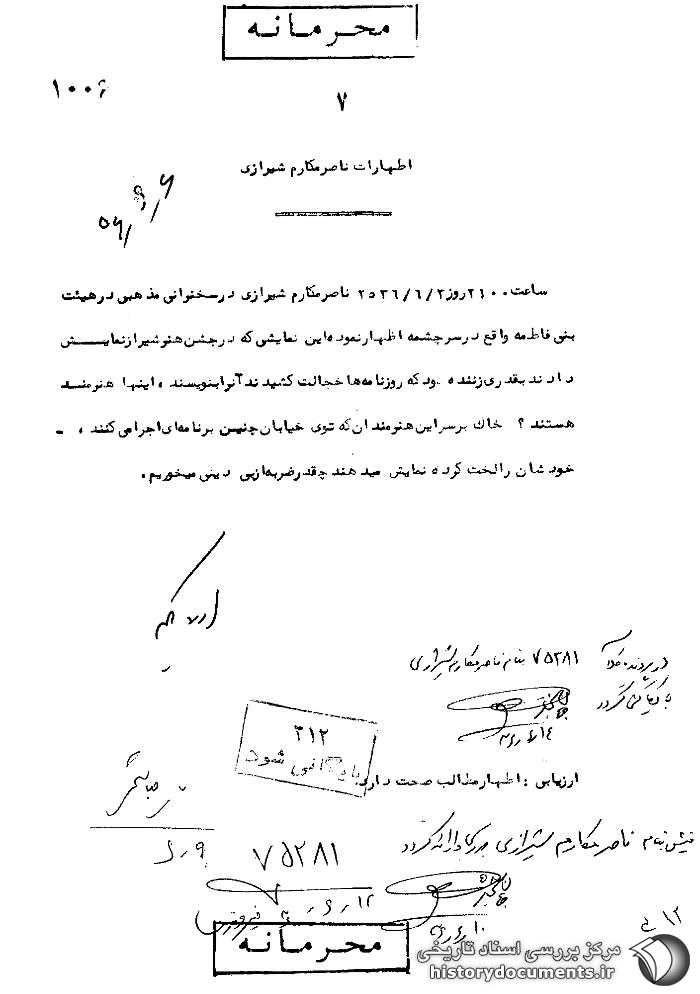 محرمانه
۱۰۰۶
۷
اظهارات ناصر مکارم شیرازی
ساعت ۲۱۰۰ روز ۲۵۳۶/۶/۲ ناصر مکارم شیرازی در سخنرانی مذهبی در هیئت
بنی فاطمه واقع در سرچشمه اظهار نموده این نمایشی که در جشن هنر شیراز نمایش
دادند بقدری زننده بود که روزنامه‌ها خجالت کشیدند آنرا بنویسند ، اینها هنرمند
هستند ؟ خاك بر سر این هنرمندان که توی خیابان چنین برنامه‌ای اجرا می کنند ، ـ
خودشان را لخت کرده نمایش میدهند چقدر ضربه از بی دینی میخوریم .
۷۵۲۸۱ بنام ناصر مکارم شیرازی
۳۱۲
بایگانی شود
ارزیابی : اظهار مطالب صحت دارد
ناصر مکارم شیرازی
۷۵۲۸۱
محرمانه
مرکز بررسی اسناد تاریخی
historydocuments.ir